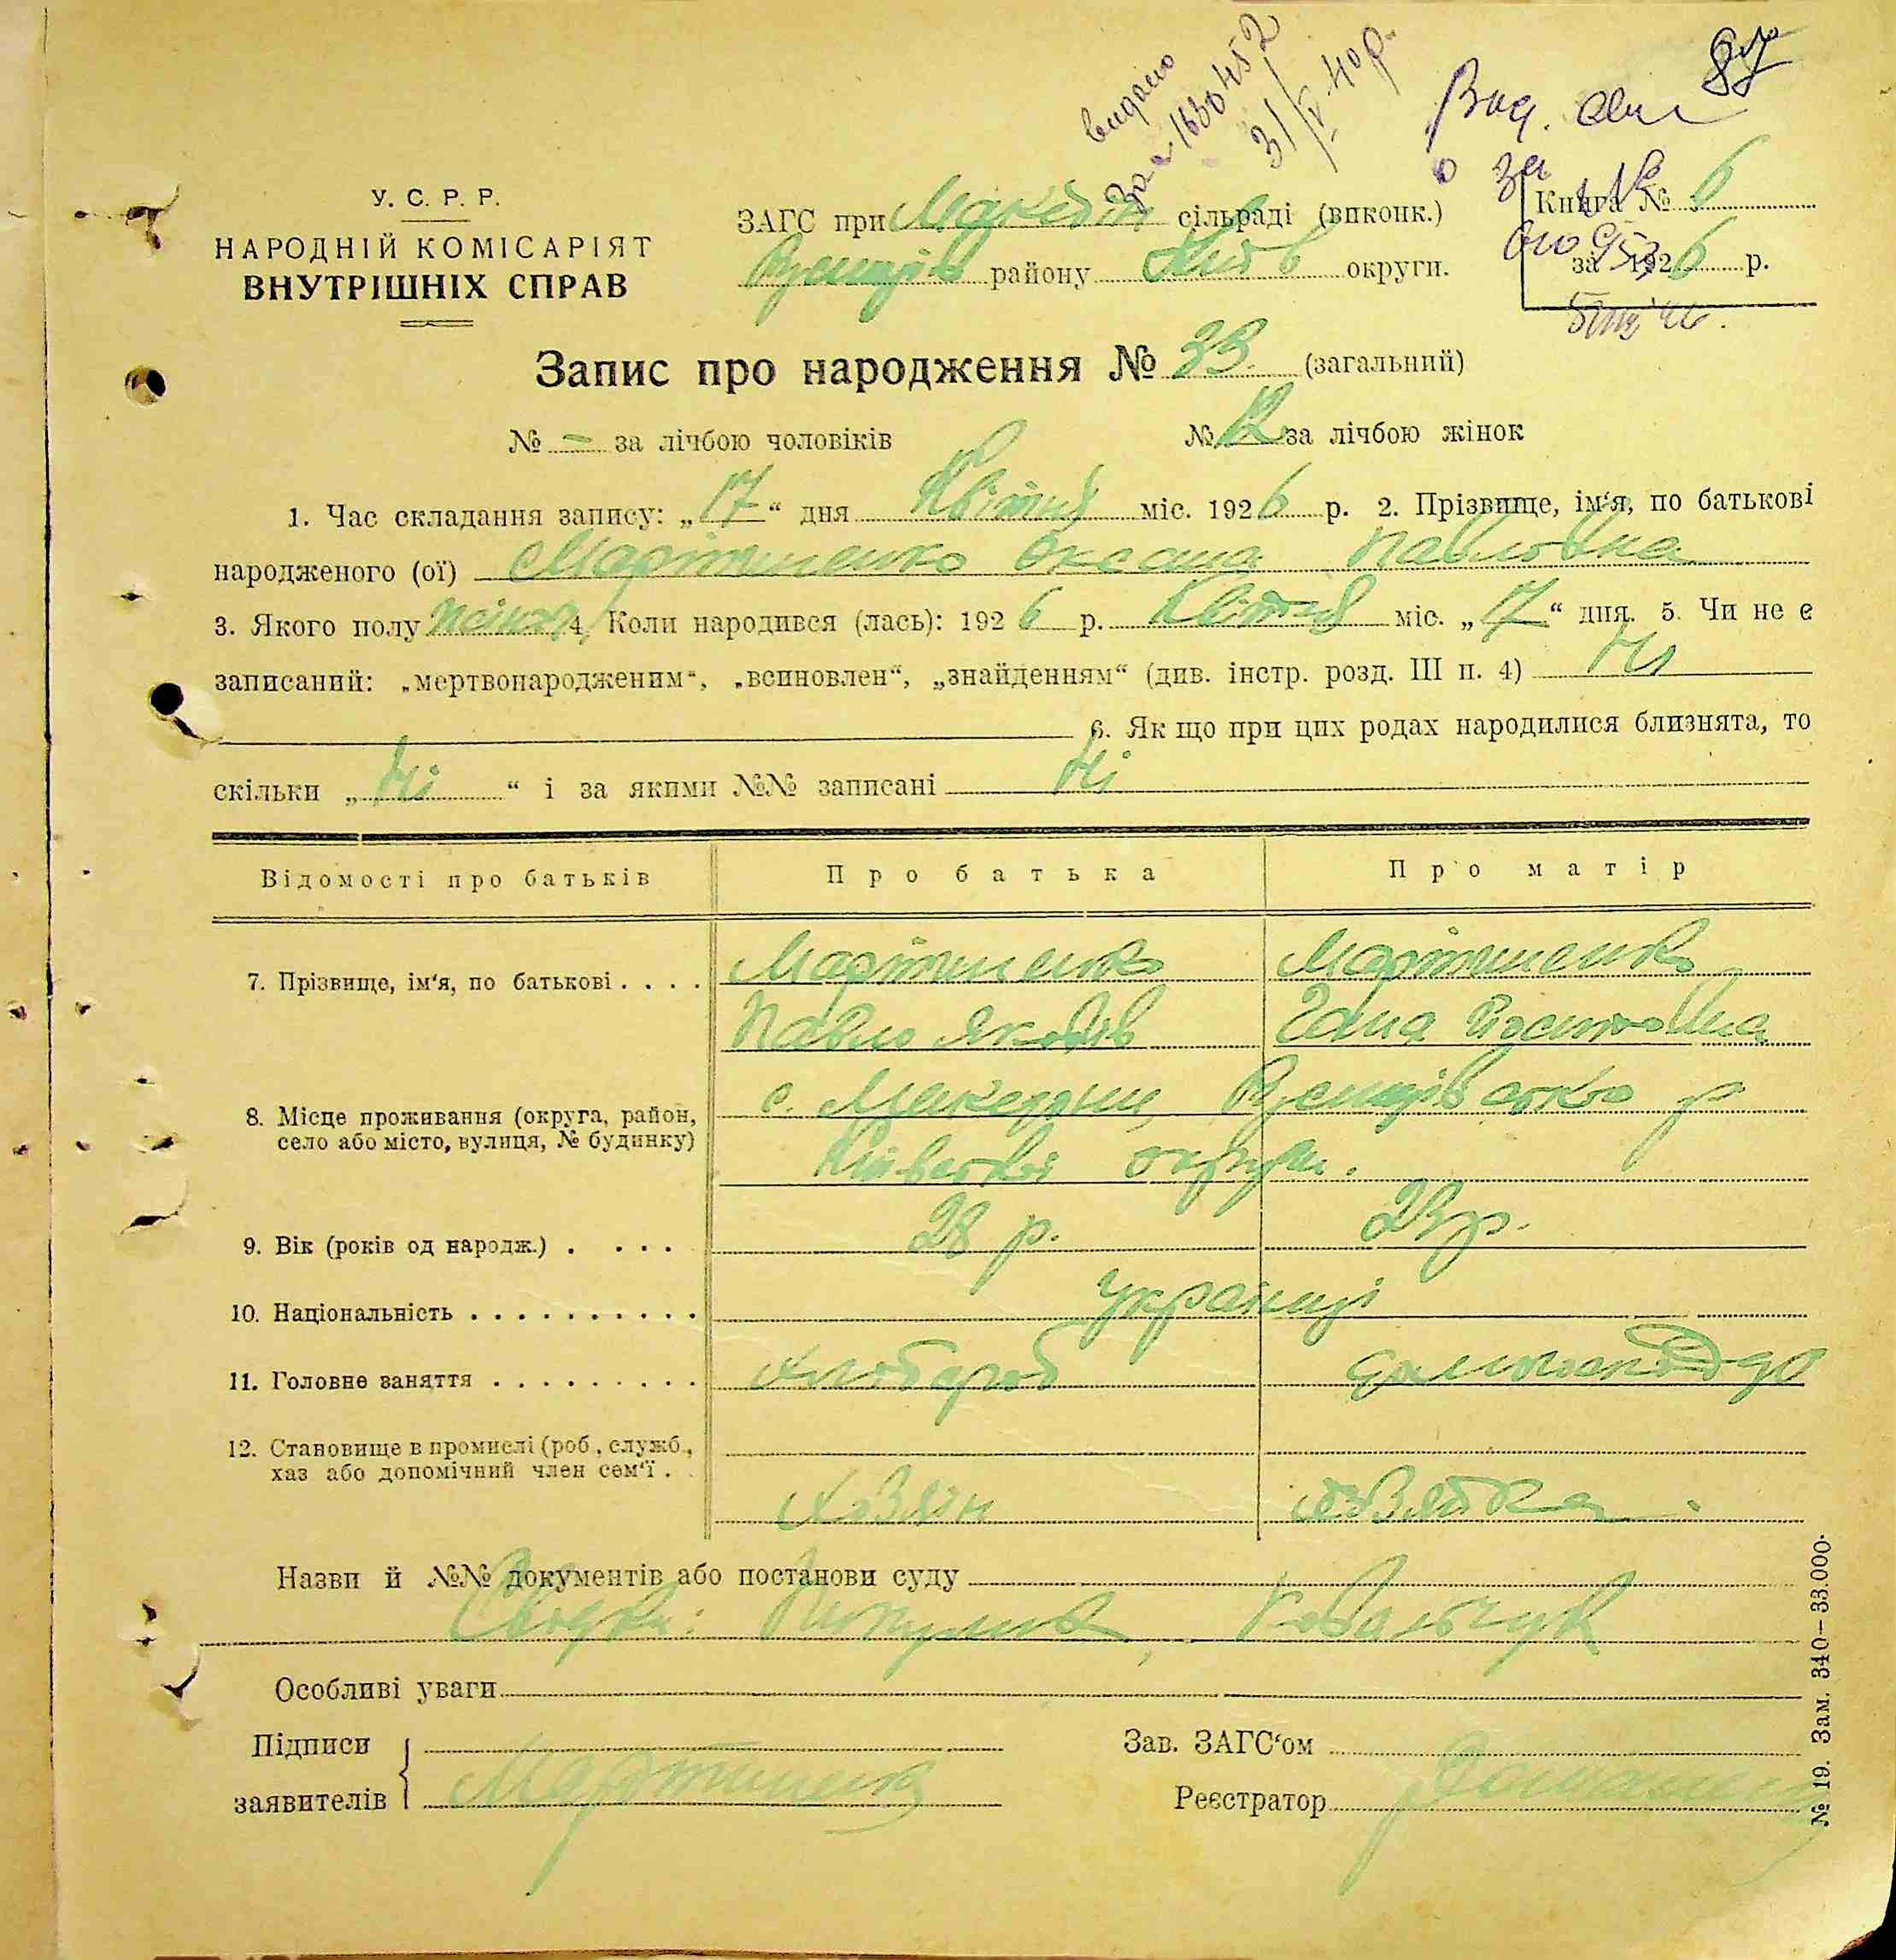 87
видано
31/V 40р.
У. С. Р. Р.
НАРОДНІЙ КОМІСАРІЯТ
ВНУТРІШНІХ СПРАВ
ЗАГС при Македон сільраді (виконк.)
району Київ округи.
Книга № 6
за 1926 р.
Запис про народження № 33. (загальний)
№ – за лічбою чоловіків № 12 за лічбою жінок
1. Час складання запису: „17“ дня Квітня міс. 1926 р. 2. Прізвище, ім‘я, по батькові
народженого (ої) Мартиненко Оксана Павловна
3. Якого полу жіноч. 4. Коли народився (лась): 1926 р. Квітня міс. „17“ дня. 5. Чи не є
записаний: „мертвонародженим“, „всиновлен“, „знайденням“ (див. інстр. розд. III п. 4) Ні
6. Як що при цих родах народилися близнята, то
скільки „Ні“ і за якими №№ записані Ні
Відомості про батьків Про батька Про матір
7. Прізвище, ім‘я, по батькові . . . . Мартиненко Мартиненко
Павло Яковів Гана
8. Місце проживання (округа, район, с. Македони, р
село або місто, вулиця, № будинку) Київської округи.
9. Вік (років од народж.) . . . . 28 р. 23 р.
10. Національність . . . . . . . . . . Українці
11. Головне заняття . . . . . . . . . Хлібороб
12. Становище в промислі (роб., служб.,
хаз або допомічний член сем‘ї . . Хозяїн хозяйка.
Назви й №№ документів або постанови суду
Свідки: Ковальчук
Особливі уваги
Підписи
заявителів Мартиненко
Зав. ЗАГС‘ом
Реєстратор
№ 19. Зам. 340–33.000.